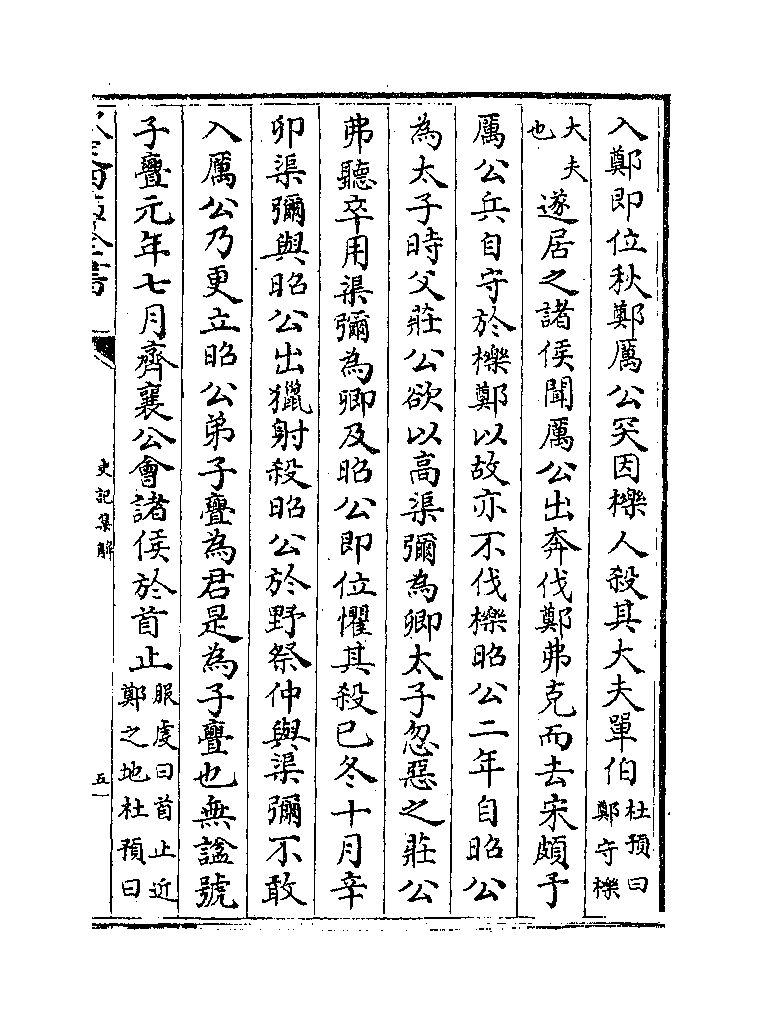 入鄭即位秋鄭厲公突因櫟人殺其大夫單伯杜預曰鄭守櫟
大夫也遂居之諸侯聞厲公出奔伐鄭弗克而去宋頗予
厲公兵自守於櫟鄭以故亦不伐櫟昭公二年自昭公
為太子時父莊公欲以高渠彌為卿太子忽惡之莊公
弗聽卒用渠彌為卿及昭公即位懼其殺已冬十月辛
卯渠彌與昭公出獵射殺昭公於野祭仲與渠彌不敢
入厲公乃更立昭公弟子亹為君是為子亹也無諡號
子亹元年七月齊襄公會諸侯於首止服虔曰首止近鄭之地杜預曰
史記集解
五